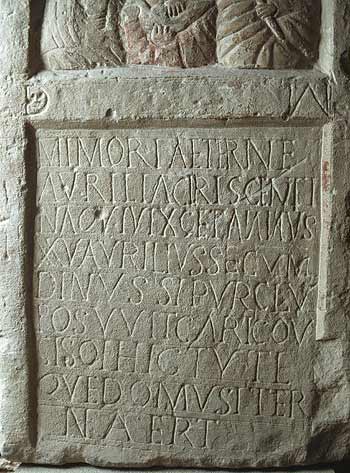 D M
MIMORI AETERNE
AVRILIA CRISCENTI
NA QVI VIXGET ANNVS
XV AVRILIVS SECVN
DINVS SYPVRCLV
POSVVIT CARI COV
HIC
QVE DOMVS ITER
NA ERT